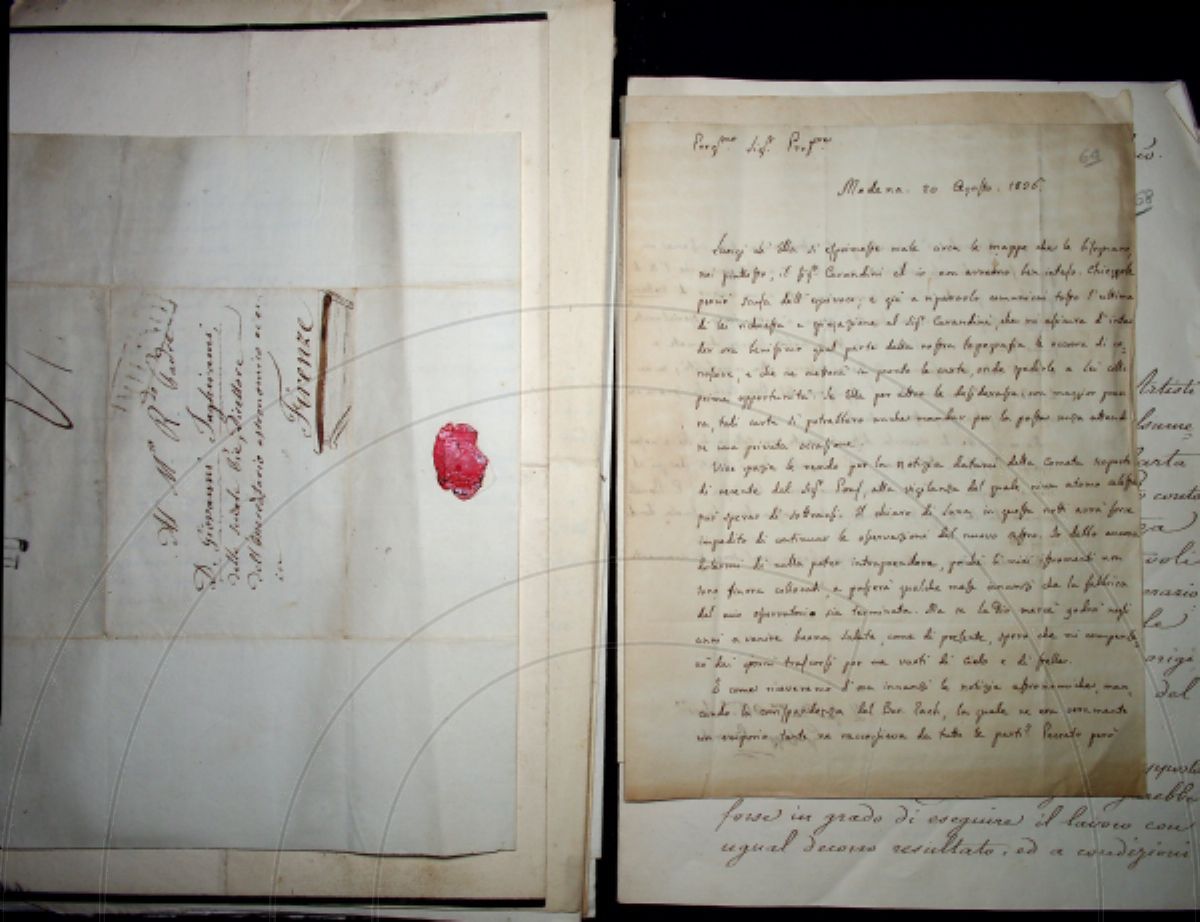 Al M.to R.do Padre
D. Giovanni Inghirami
delle Scuole Pie, Direttore
dell'Osservatorio astronomico
in
Firenze
Preg.mo Sig.r Prof.re
69
Modena. 20 Agosto. 1826.
Lungi ch'Ella si esprimesse male circa le mappe che le bisognano,
noi piuttosto, il Sig.r Carandini ed io, non avevamo ben inteso. Chieggole
perciò scusa dell'equivoco; e già a ripararlo comunicai tosto l'ultima
di lei richiesta e spiegazione al Sig.r Carandini, che mi assicura d'inten
der ora benissimo qual parte della nostra topografia le occorra di co-
noscere, e che ne metterà in pronto le carte, onde spedirle a lei colla
prima opportunità. Se Ella per altro le desiderasse con maggior premu
ra, tali carte si potrebbero anche mandar per la posta senza attende
re una privata occasione.
Vive grazie le rendo per la notizia datami della Cometa scoperta
di recente dal Sig.r Pons, alla vigilanza del quale niun atomo celeste
può sperar di sottrarsi. Il chiaro di Luna in queste notti avrà forse
impedito di continuar le osservazioni del nuovo astro. Io debbo ancora
astenermi di nulla poter intraprendere, poichè li miei istromenti non
sono finora collocati, e passerà qualche mese innanzi che la fabbrica
del mio osservatorio sia terminata. Ma se la Dio mercè godrò negli
anni a venire buona salute, come di presente, spero che mi compense
rò dei giorni trascorsi per me vuoti di cielo e di stelle.
E come riceveremo d'ora innanzi le notizie astronomiche, man-
cando la corrispondenza del Bar. Zach, la quale ne era veramente
un emporio, tante ne raccoglieva da tutte le parti? Peccato però
68
Artisti
carta
del
forse in grado di eseguire il lavoro con
ugual decoro resultato, ed a condizioni